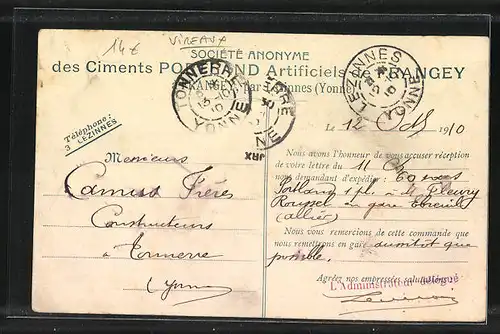 14€ VIREAUX
SOCIÉTÉ ANONYME
des Ciments PORTLAND Artificiels de FRANGEY
FRANGEY par Lézinnes (Yonne)
TONNERRE
YONNE
LEZINNES
YONNE
Téléphone:
3 LEZINNES
Le 12 1910
Messieurs
Camus Frères
Constructeurs
à
Yonne
Nous avons l'honneur de vous accuser réception
de votre lettre du 11
nous demandant d'expédier: 60 sacs
Portland 1 pl. M. Fleury
en gare Ebreuil
(allier)
Nous vous remercions de cette commande que
nous remettrons en gare aussitôt que
possible.
Agréez nos empressées salutations.
L'Administrateur délégué